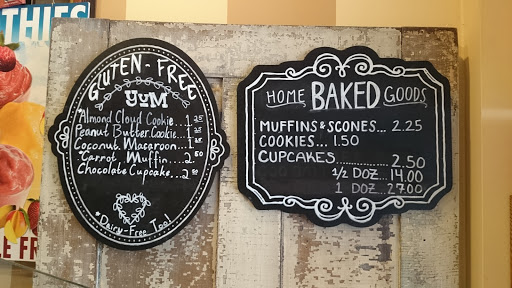 THIES
E FR
GLUTEN-FREE
YUM
*Almond Cloud Cookie...1.25
Peanut Butter Cookie...1.25
Coconut Macaroon...1.25
*Carrot Muffin...2.50
Chocolate Cupcake...2.50
*Dairy-Free Too!
HOME BAKED GOODS
MUFFINS & SCONES... 2.25
COOKIES... 1.50
CUPCAKES............ 2.50
1/2 DOZ...14.00
1 DOZ...27.00